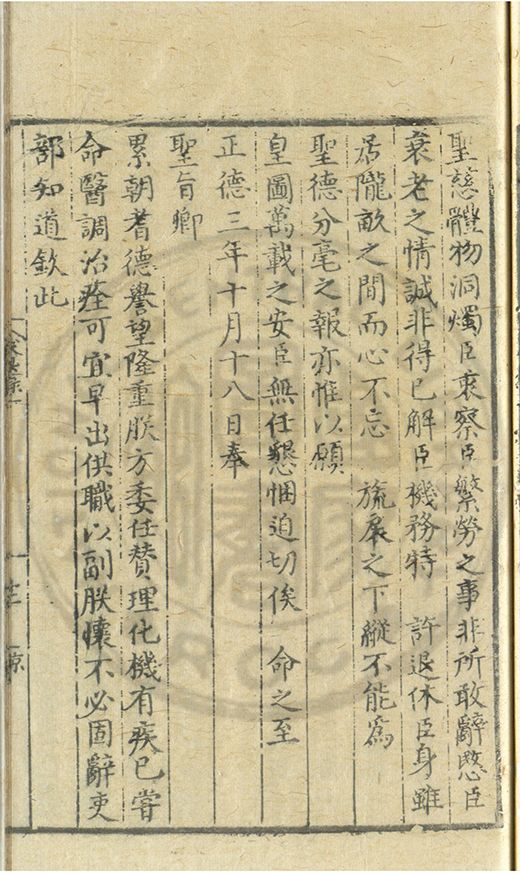 聖慈體物洞燭臣衷察臣繁勞之事非所敢辭愍臣
衰老之情誠非得已解臣機務特　許退休臣身雖
居隴畝之間而心不忘　旒扆之下縱不能爲
聖德分毫之報亦惟以願
皇圖萬載之安臣無任懇悃迫切俟　命之至
正德三年十月十八日奉
聖旨卿
累朝耆德譽望隆重朕方委任贊理化機有疾已嘗
命醫調治痊可宜早出供職以副朕懷不必固辭吏
部知道欽此